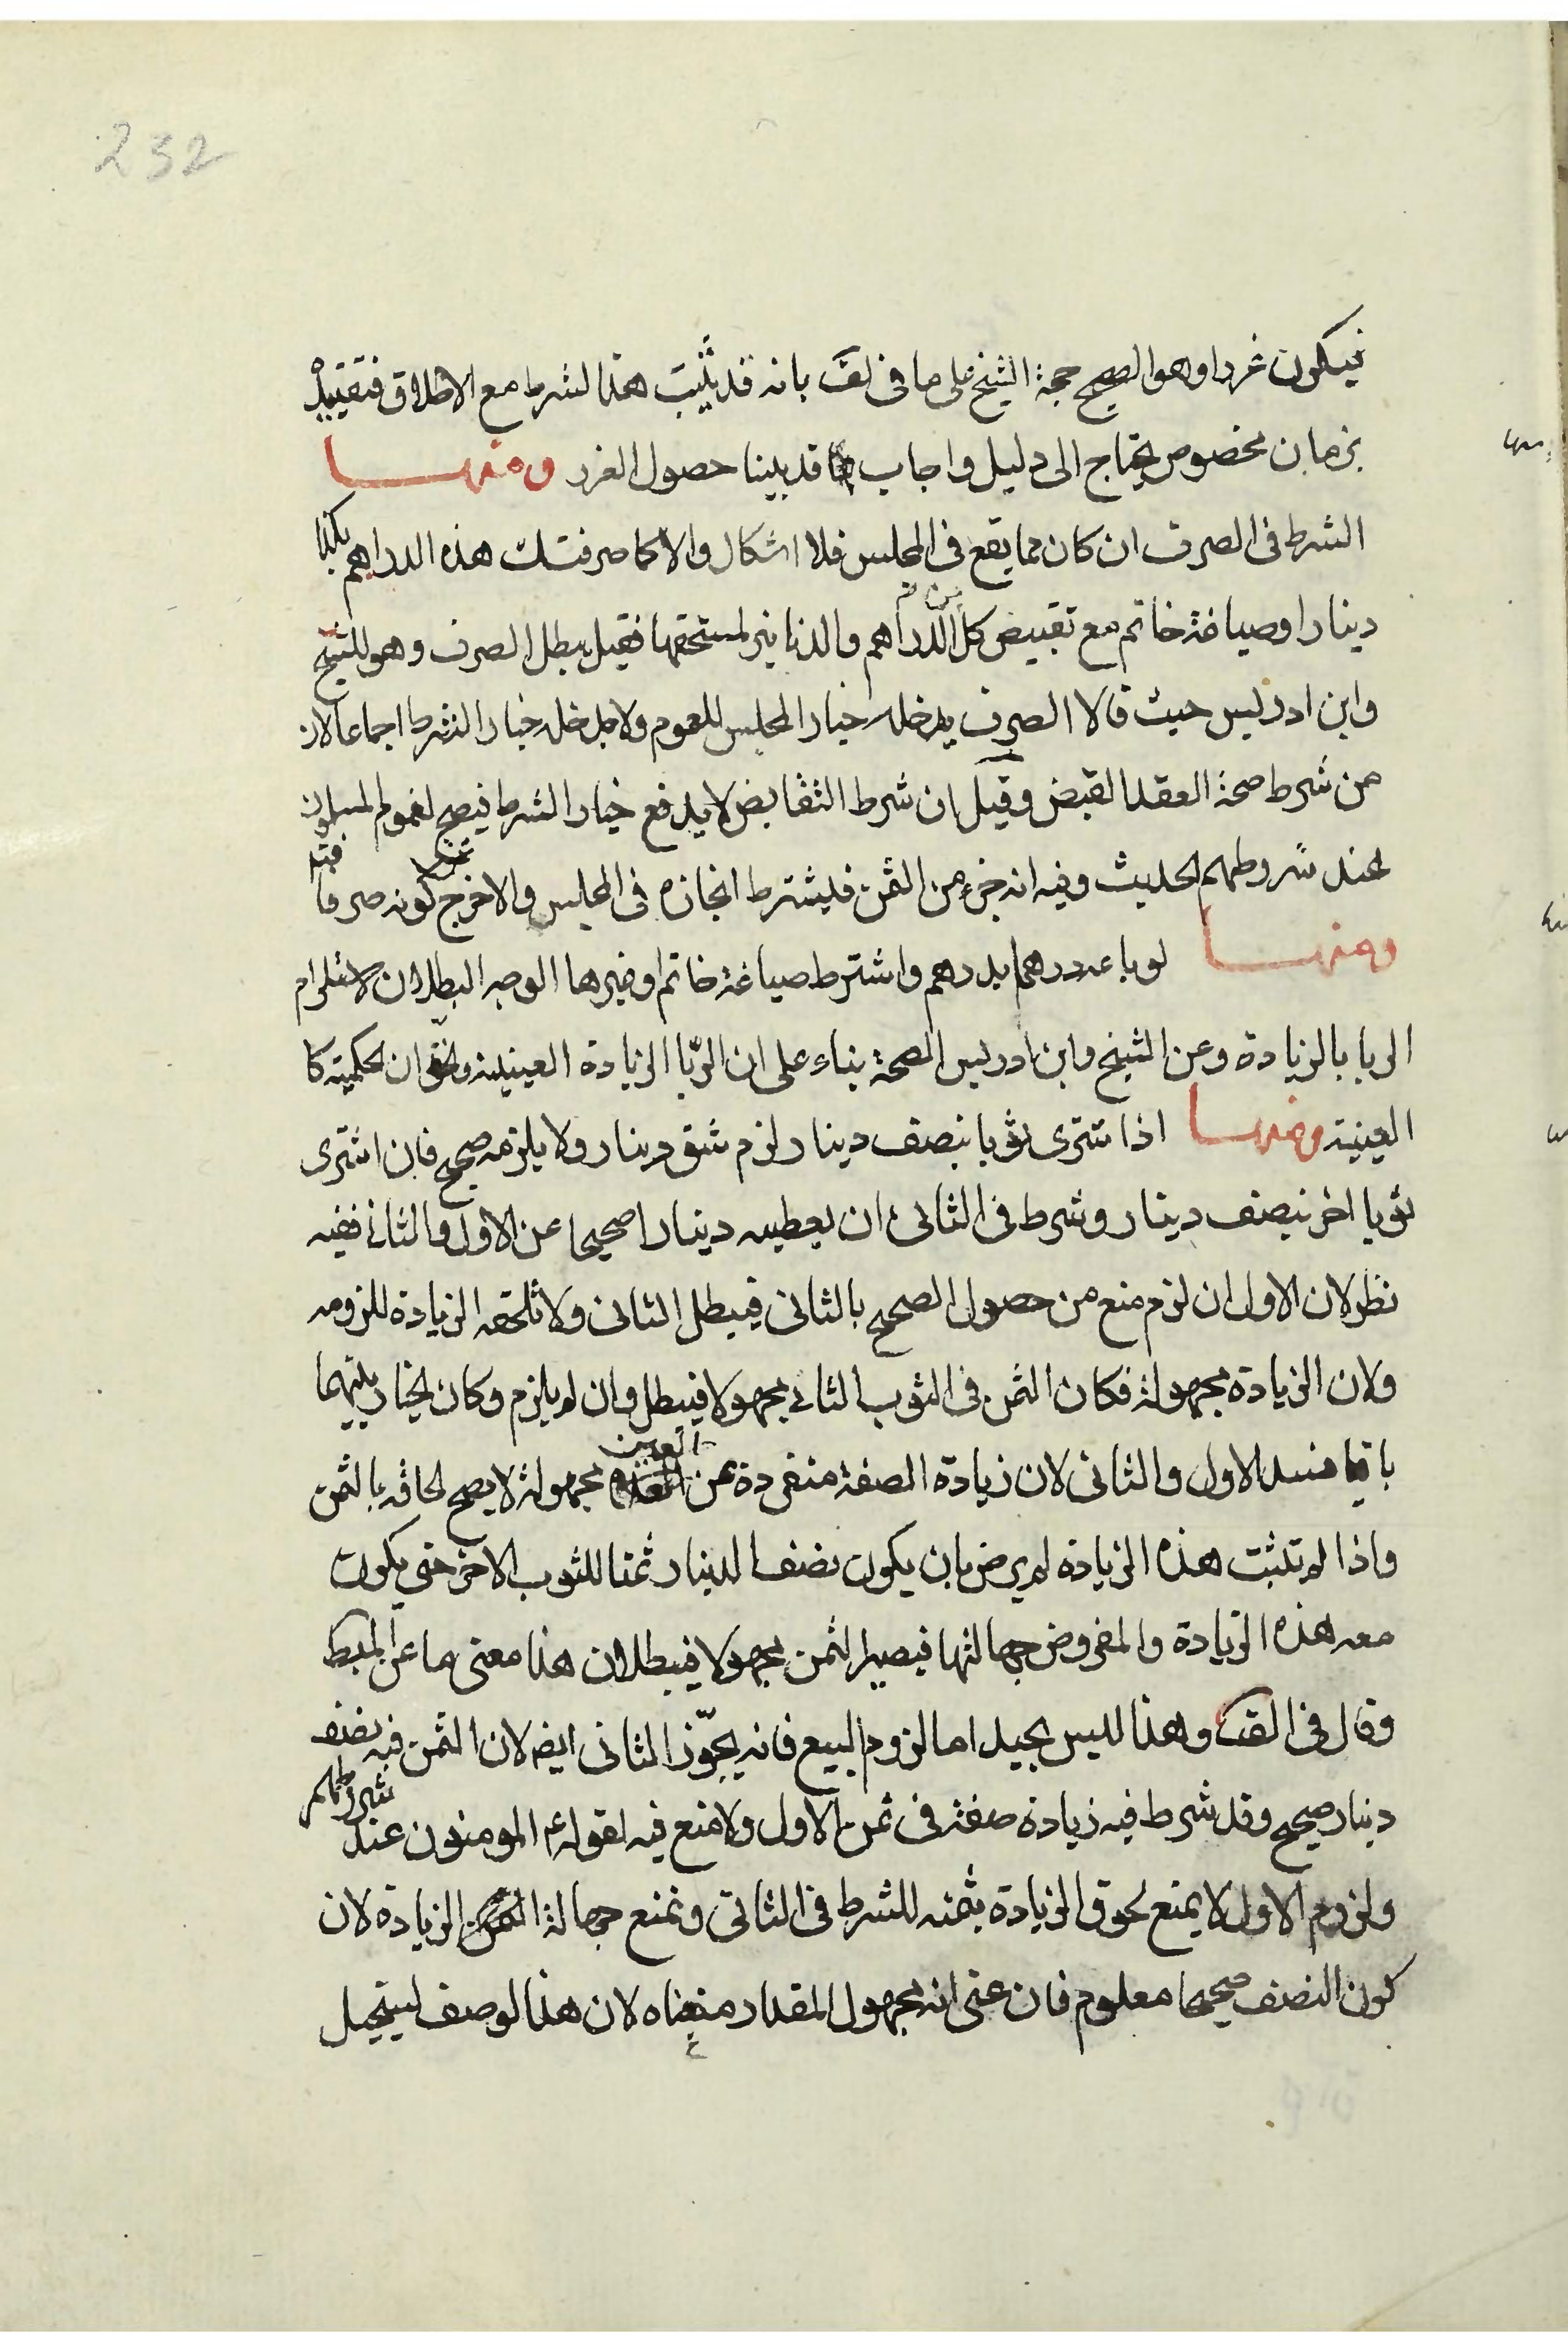 232
فيكون غررا وهو الصحيح حجة الشيخ على ما في لف بانه قد يثبت هذا الشرط مع الاطلاق فتقييده
بزمان مخصوص يحتاج الى دليل واجاب قد بينا حصول الغرر ومنها
الشرط في الصرف ان كان مما يقع في المجلس فلا اشكال والا كما صرفتك هذه الدراهم بكذا
دينارا وصياغة خاتم مع تقبيض كل من الدراهم والدنانير لمستحقها فقيل يبطل الصرف وهو للشيخ
وابن ادريس حيث قالا الصرف يدخله خيار المجلس للعموم ولا يدخله خيار الشرط اجماعا لان
من شرط صحة العقد القبض وقيل ان شرط التقابض لا يدفع خيار الشرط فيصح لعموم المسلمون
عند شروطهم الحديث وفيه انه جزء من الثمن فليشترط انجازه في المجلس والا خرج عن كونه صرفا فتد
ومنها لو باعه درهما بدرهم واشترط صياغة خاتم او غيرها الوجه البطلان لاستلزام
الربا بالزيادة وعن الشيخ وابن ادريس الصحة بناء على ان الربا الزيادة العينية والحق ان الحكمية كا
العينية ومنها اذا شترى ثوبا بنصف دينار لزم شق دينار ولا يلزمه صحيح فان اشترى
ثوبا اخر بنصف دينار وشرط في الثاني ان يعطيه دينارا صحيحا عن الاول والثاني ففيه
نظر لان الاول ان لزم منع من حصول الصحيح بالثاني فيبطل الثاني ولا تلحقه الزيادة للزومه
ولان الزيادة مجهولة فكان الثمن في الثوب الثاني مجهولا فيبطل وان لم يلزم وكان الخيار بينهما
باقيا فسد الاول والثاني لان زيادة الصفة منفردة عن العين مجهولة لا يصح لحاقه بالثمن
واذا لم تثبت هذه الزيادة لم يرض بان يكون نصف الدينار ثمنا للثوب الاخر حتى يكون
معه هذه الزيادة والمفروض جهالتها فيصير الثمن مجهولا فيبطلان هذا معنى ما عن المبسط
وقال في الف وهذا ليس بجيد اما لزوم البيع فانه يجوز الثاني ايضه لان الثمن فيه نصف
دينار صحيح وقد شرط فيه زيادة صفة في ثمن الاول ولا منع فيه لقوله ع المومنون عند شروطهم
ولزوم الاول لا يمنع لحوق الزيادة بثمنه للشرط في الثاني ونمنع جهالة الزيادة لان
كون النصف صحيحا معلوم فان عنى انه مجهول المقدار منعناه لان هذا الوصف يستحيل